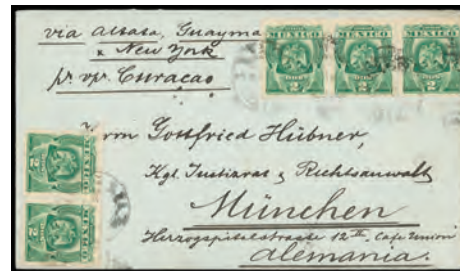 via Altata, Guayma
x New York
pr. vpr. Curaçao
MEXICO MEXICO MEXICO
DOS DOS DOS
2 2 2
Herrn Gottfried Hübner,
Kgl. Justizrat & Rechtsanwalt
München
Herzogspitalstraße 12 II, Cafe Union
Alemania.
MEXICO
2
MEXICO
2